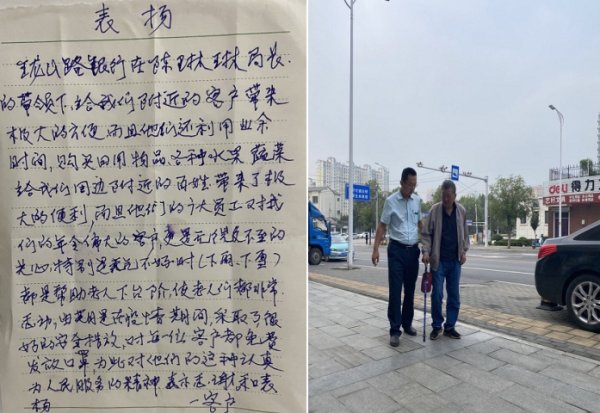 表扬
山路银行在陈琳琳局长
的带领下,给我们附近的客户带来
极大的方便,而且他们还利用业余
时间,购买日用物品,各种水果蔬菜
给我们周边附近的百姓带来了极
大的便利,而且他们的广大员工对我
们的年令偏大的客户,更是无微不至的
关心,特别是天气不好时(下雨、下雪)
都是帮助老人下台阶,使老人们都非常
感动,由其是还在
好的安全措施,对每一位客户都免费
发放口罩,为此对他们的这种认真
为人民服务的精神表示感谢和表
扬
一客户
deli 得力